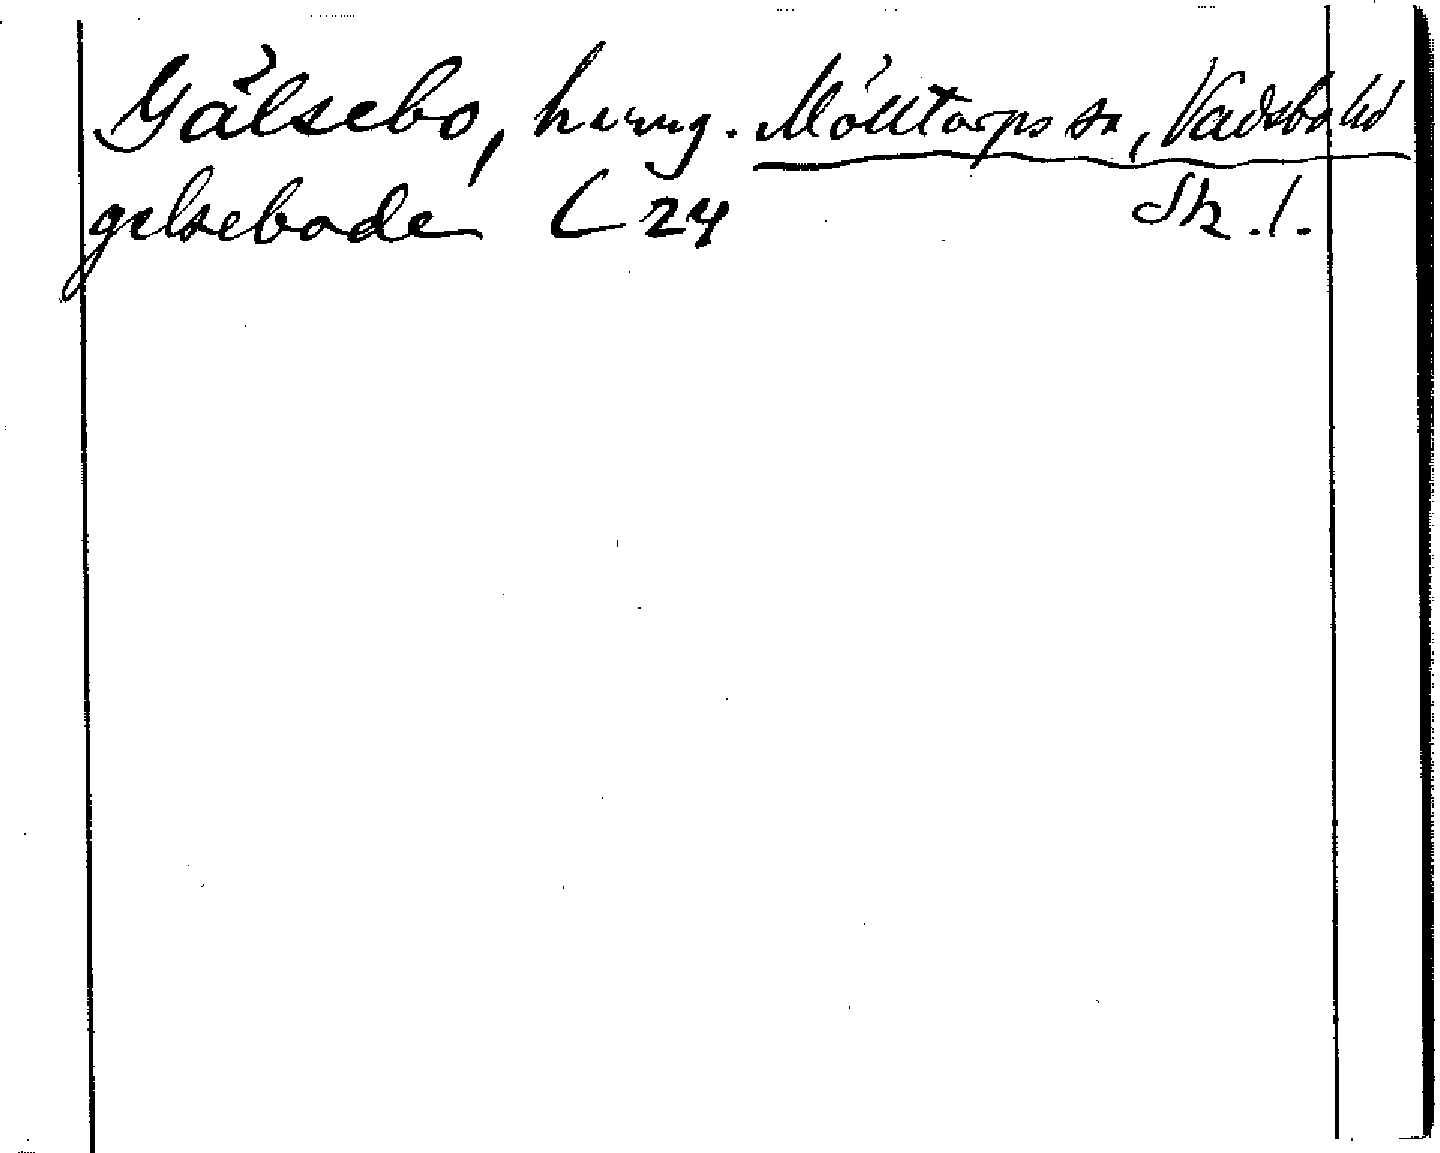 Gälsebo, hemg. Mölltorps sn, Vadsbo hd
gelsebode C 24 Sk. l.